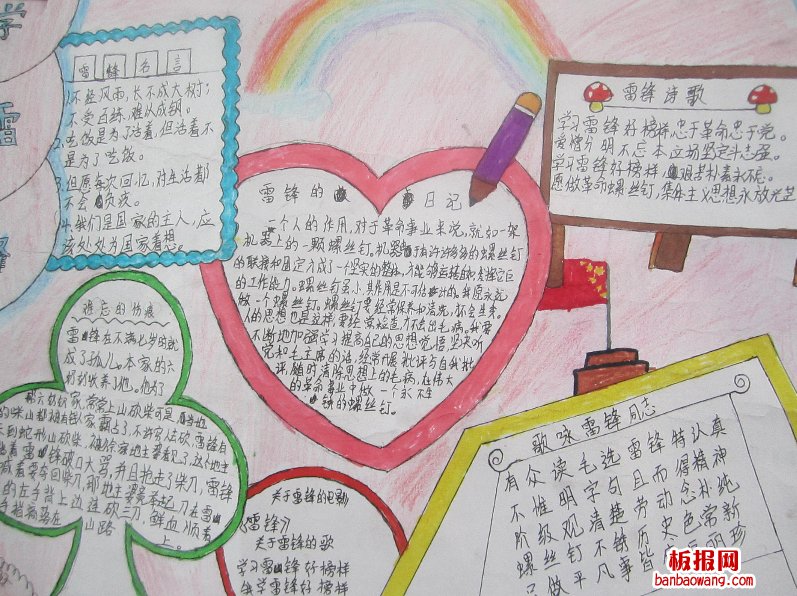 学
雷
锋
雷锋名言
1.不经风雨,长不成大树;
不受百练,难以成钢。
2.吃饭是为了活着,但活着不
是为了吃饭。
3.但愿每次回忆,对生活都
不会负疚。
4.我们是国家的主人,应
该处处为国家着想。
雷锋的日记
一个人的作用,对于革命事业来说,就如一架
机器上的一颗螺丝钉。机器由于有许许多多的螺丝钉
的联接和固定,才成了一个坚实的整体,才能够运转自如,发挥它巨
大的工作能力。螺丝钉虽小,其作用是不可估计的。我愿永远
做一个螺丝钉。螺丝钉要经常保养和清洗,才不会生锈。
人的思想也是这样,要经常检查,才不会出毛病。我要
不断地加强学习,提高自己的思想觉悟,坚决听
党和毛主席的话,经常开展批评与自我批
评,随时清除思想上的毛病,在伟大
的革命事业中做一个永不生
锈的螺丝钉。
雷锋诗歌
学习雷锋好榜样,忠于革命忠于党。
爱憎分明不忘本,立场坚定斗志强。
学习雷锋好榜样,艰苦朴素永不忘。
愿做革命螺丝钉,集体主义思想永放光芒
难忘的伤痕
雷锋在不满七岁时就
成了孤儿。本家的六
奶奶收养了他。他为了
帮六奶奶家,常常上山砍柴,可是,当地
的柴山都被有钱人家霸占了,不许穷人去砍。雷锋有
天到蛇形山砍柴,被徐家地主婆看见了,这个地主
指着雷锋破口大骂,并且抢走了柴刀,雷锋
喊着要夺回柴刀,那地主婆举起刀在雷锋
的左手背上边连砍三刀,鲜血顺着
手指滴落在山路上。
关于雷锋的电影
《雷锋》
关于雷锋的歌
学习雷锋好榜样
歌咏雷锋同志
有众读毛选雷锋特认真
不惟明字句且而得精神
阶级观清楚劳动念朴纯
螺丝钉不锈历史色常新
只做平凡事皆
板报网
banbaowang.com